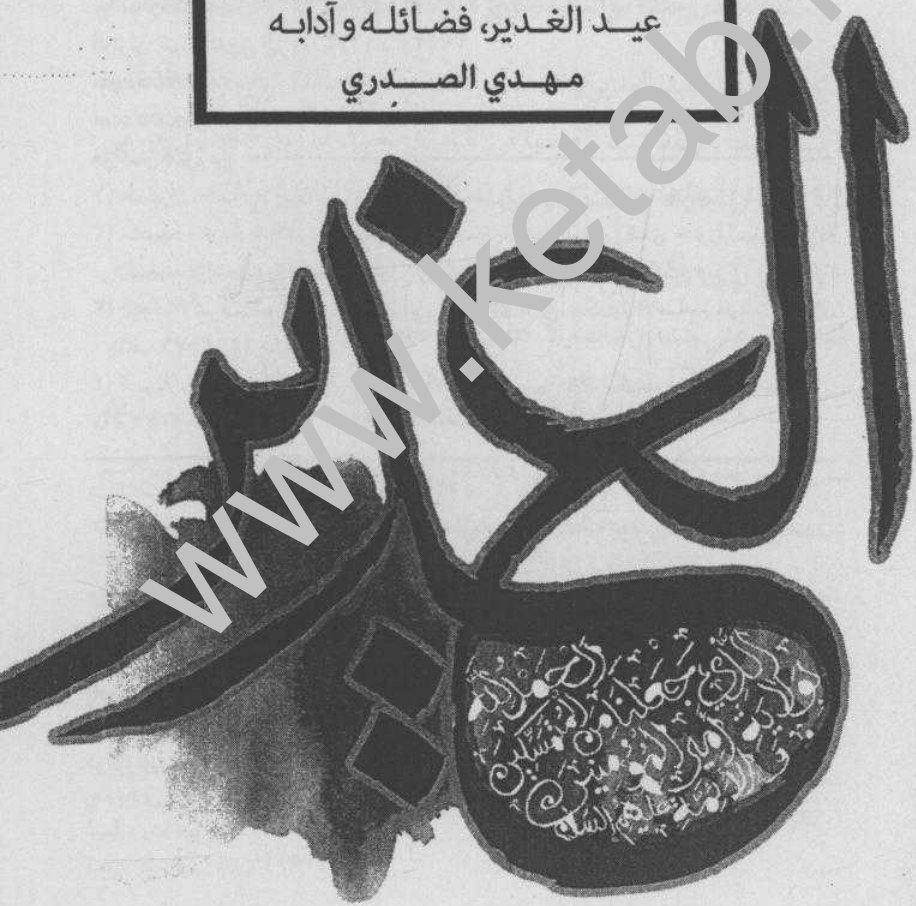 عيد الغدير، فضائله وآدابه
مهدي الصدري
الغدير
الحمد لله
الذي جعلنا من المتمسكين
بولاية أمير المؤمنين
والأئمة عليهم السلام
www.ketab.